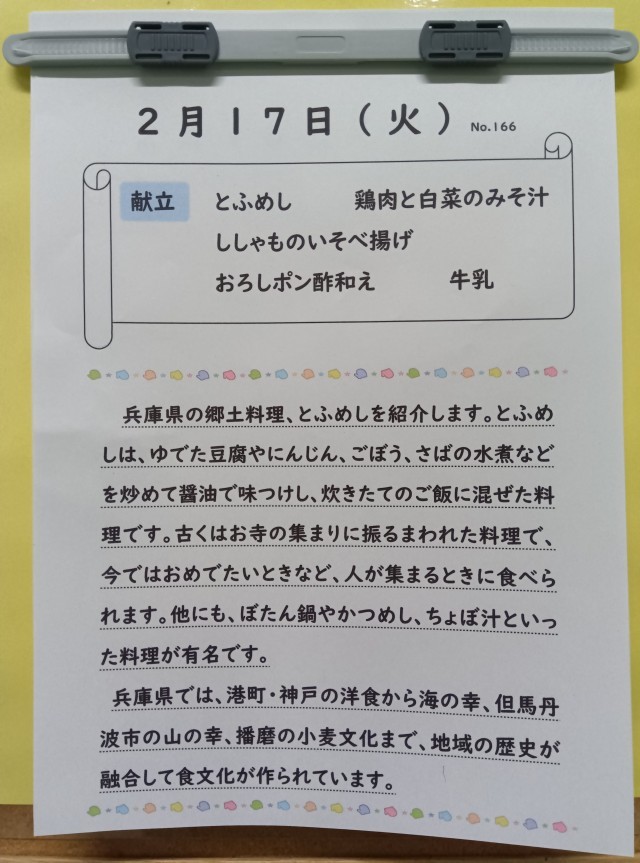 2月17日(火) No.166
献立 とふめし 鶏肉と白菜のみそ汁
ししゃものいそべ揚げ
おろしポン酢和え 牛乳
兵庫県の郷土料理、とふめしを紹介します。とふめ
しは、ゆでた豆腐やにんじん、ごぼう、さばの水煮など
を炒めて醤油で味つけし、炊きたてのご飯に混ぜた料
理です。古くはお寺の集まりに振るまわれた料理で、
今ではおめでたいときなど、人が集まるときに食べら
れます。他にも、ぼたん鍋やかつめし、ちょぼ汁といっ
た料理が有名です。
兵庫県では、港町・神戸の洋食から海の幸、但馬丹
波市の山の幸、播磨の小麦文化まで、地域の歴史が
融合して食文化が作られています。